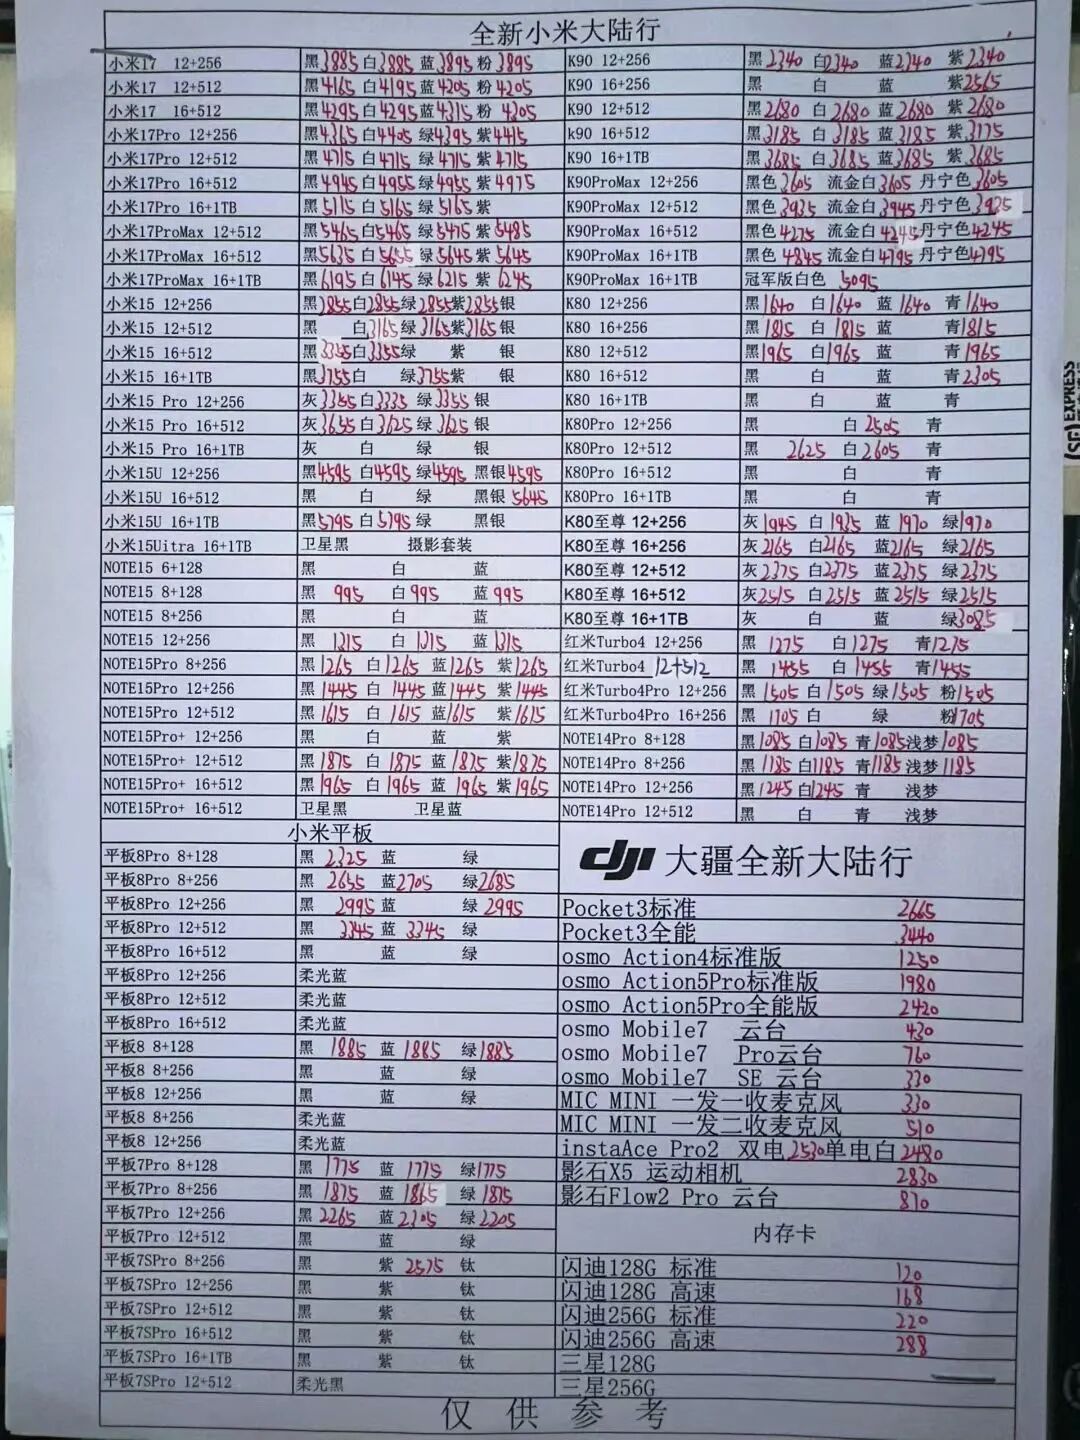 全新小米大陆行
小米17 12+256 黑3885 白3885 蓝3895 粉3895
小米17 12+512 黑4165 白4195 蓝4205 粉4205
小米17 16+512 黑4295 白4295 蓝4315 粉4305
小米17Pro 12+256 黑4365 白4405 绿4395 紫4415
小米17Pro 12+512 黑4715 白4715 绿4715 紫4715
小米17Pro 16+512 黑4945 白4955 绿4955 紫4975
小米17Pro 16+1TB 黑5115 白5165 绿5165 紫
小米17ProMax 12+512 黑5465 白5465 绿5475 紫5485
小米17ProMax 16+512 黑5635 白5655 绿5645 紫5645
小米17ProMax 16+1TB 黑6195 白6145 绿6215 紫6245
小米15 12+256 黑2855 白2855 绿2855 紫2855 银
小米15 12+512 黑 白3165 绿3165 紫3165 银
小米15 16+512 黑3355 白3355 绿 紫 银
小米15 16+1TB 黑3755 白 绿3755 紫 银
小米15 Pro 12+256 灰3355 白3335 绿3355 银
小米15 Pro 16+512 灰3655 白3625 绿3625 银
小米15 Pro 16+1TB 灰 白 绿 银
小米15U 12+256 黑4595 白4595 绿4595 黑银4595
小米15U 16+512 黑 白 绿 黑银5645
小米15U 16+1TB 黑5795 白5795 绿 黑银
小米15Uitra 16+1TB 卫星黑 摄影套装
NOTE15 6+128 黑 白 蓝
NOTE15 8+128 黑995 白995 蓝995
NOTE15 8+256 黑 白 蓝
NOTE15 12+256 黑1315 白1315 蓝1315
NOTE15Pro 8+256 黑1265 白1265 蓝1265 紫1265
NOTE15Pro 12+256 黑1445 白1445 蓝1445 紫1445
NOTE15Pro 12+512 黑1615 白1615 蓝1615 紫1615
NOTE15Pro+ 12+256 黑 白 蓝 紫
NOTE15Pro+ 12+512 黑1875 白1875 蓝1875 紫1875
NOTE15Pro+ 16+512 黑1965 白1965 蓝1965 紫1965
NOTE15Pro+ 16+512 卫星黑 卫星蓝
小米平板
平板8Pro 8+128 黑2325 蓝 绿
平板8Pro 8+256 黑2655 蓝2705 绿2685
平板8Pro 12+256 黑2995 蓝 绿2995
平板8Pro 12+512 黑3345 蓝3345 绿
平板8Pro 16+512 黑 蓝 绿
平板8Pro 12+256 柔光蓝
平板8Pro 12+512 柔光蓝
平板8Pro 16+512 柔光蓝
平板8 8+128 黑1885 蓝1885 绿1885
平板8 8+256 黑 蓝 绿
平板8 12+256 黑 蓝 绿
平板8 8+256 柔光蓝
平板8 12+256 柔光蓝
平板7Pro 8+128 黑1775 蓝1775 绿1775
平板7Pro 8+256 黑1875 蓝1865 绿1875
平板7Pro 12+256 黑2265 蓝2305 绿2205
平板7Pro 12+512 黑 蓝 绿
平板7SPro 8+256 黑 紫2575 钛
平板7SPro 12+256 黑 紫 钛
平板7SPro 12+512 黑 紫 钛
平板7SPro 16+512 黑 紫 钛
平板7SPro 16+1TB 黑 紫 钛
平板7SPro 12+512 柔光黑
K90 12+256 黑2340 白2340 蓝2340 紫2340
K90 16+256 黑 白 蓝 紫2565
K90 12+512 黑2680 白2680 蓝2680 紫2680
k90 16+512 黑3185 白3185 蓝3185 紫3175
K90 16+1TB 黑3685 白3685 蓝3685 紫3685
K90ProMax 12+256 黑色3605 流金白3605 丹宁色3605
K90ProMax 12+512 黑色3935 流金白3945 丹宁色3935
K90ProMax 16+512 黑色4275 流金白4245 丹宁色4245
K90ProMax 16+1TB 黑色4845 流金白4795 丹宁色4795
K90ProMax 16+1TB 冠军版白色 5095
K80 12+256 黑1640 白1640 蓝1640 青1640
K80 16+256 黑1815 白1815 蓝 青1815
K80 12+512 黑1965 白1965 蓝 青1965
K80 16+512 黑 白 蓝 青2305
K80 16+1TB 黑 白 蓝 青
K80Pro 12+256 黑 白2505 青
K80Pro 12+512 黑2625 白2605 青
K80Pro 16+512 黑 白 青
K80Pro 16+1TB 黑 白 青
K80至尊 12+256 灰1945 白1925 蓝1970 绿1970
K80至尊 16+256 灰2165 白2165 蓝2165 绿2165
K80至尊 12+512 灰2375 白2375 蓝2375 绿2375
K80至尊 16+512 灰2515 白2515 蓝2515 绿2515
K80至尊 16+1TB 灰 白 蓝 绿3085
红米Turbo4 12+256 黑1275 白1275 青1275
红米Turbo4 12+512 黑1455 白1455 青1455
红米Turbo4Pro 12+256 黑1505 白1505 绿1505 粉1505
红米Turbo4Pro 16+256 黑1705 白 绿 粉1705
NOTE14Pro 8+128 黑1085 白1085 青1085 浅梦1085
NOTE14Pro 8+256 黑1185 白1185 青1185 浅梦1185
NOTE14Pro 12+256 黑1245 白1245 青 浅梦
NOTE14Pro 12+512 黑 白 青 浅梦
dji 大疆全新大陆行
Pocket3标准 2665
Pocket3全能 3440
osmo Action4标准版 1250
osmo Action5Pro标准版 1980
osmo Action5Pro全能版 2420
osmo Mobile7 云台 430
osmo Mobile7 Pro云台 760
osmo Mobile7 SE 云台 330
MIC MINI 一发一收麦克风 330
MIC MINI 一发二收麦克风 510
instaAce Pro2 双电2530单电白2480
影石X5 运动相机 2830
影石Flow2 Pro 云台 810
内存卡
闪迪128G 标准 120
闪迪128G 高速 168
闪迪256G 标准 220
闪迪256G 高速 288
三星128G
三星256G
仅供参考
(SF)EXPRESS